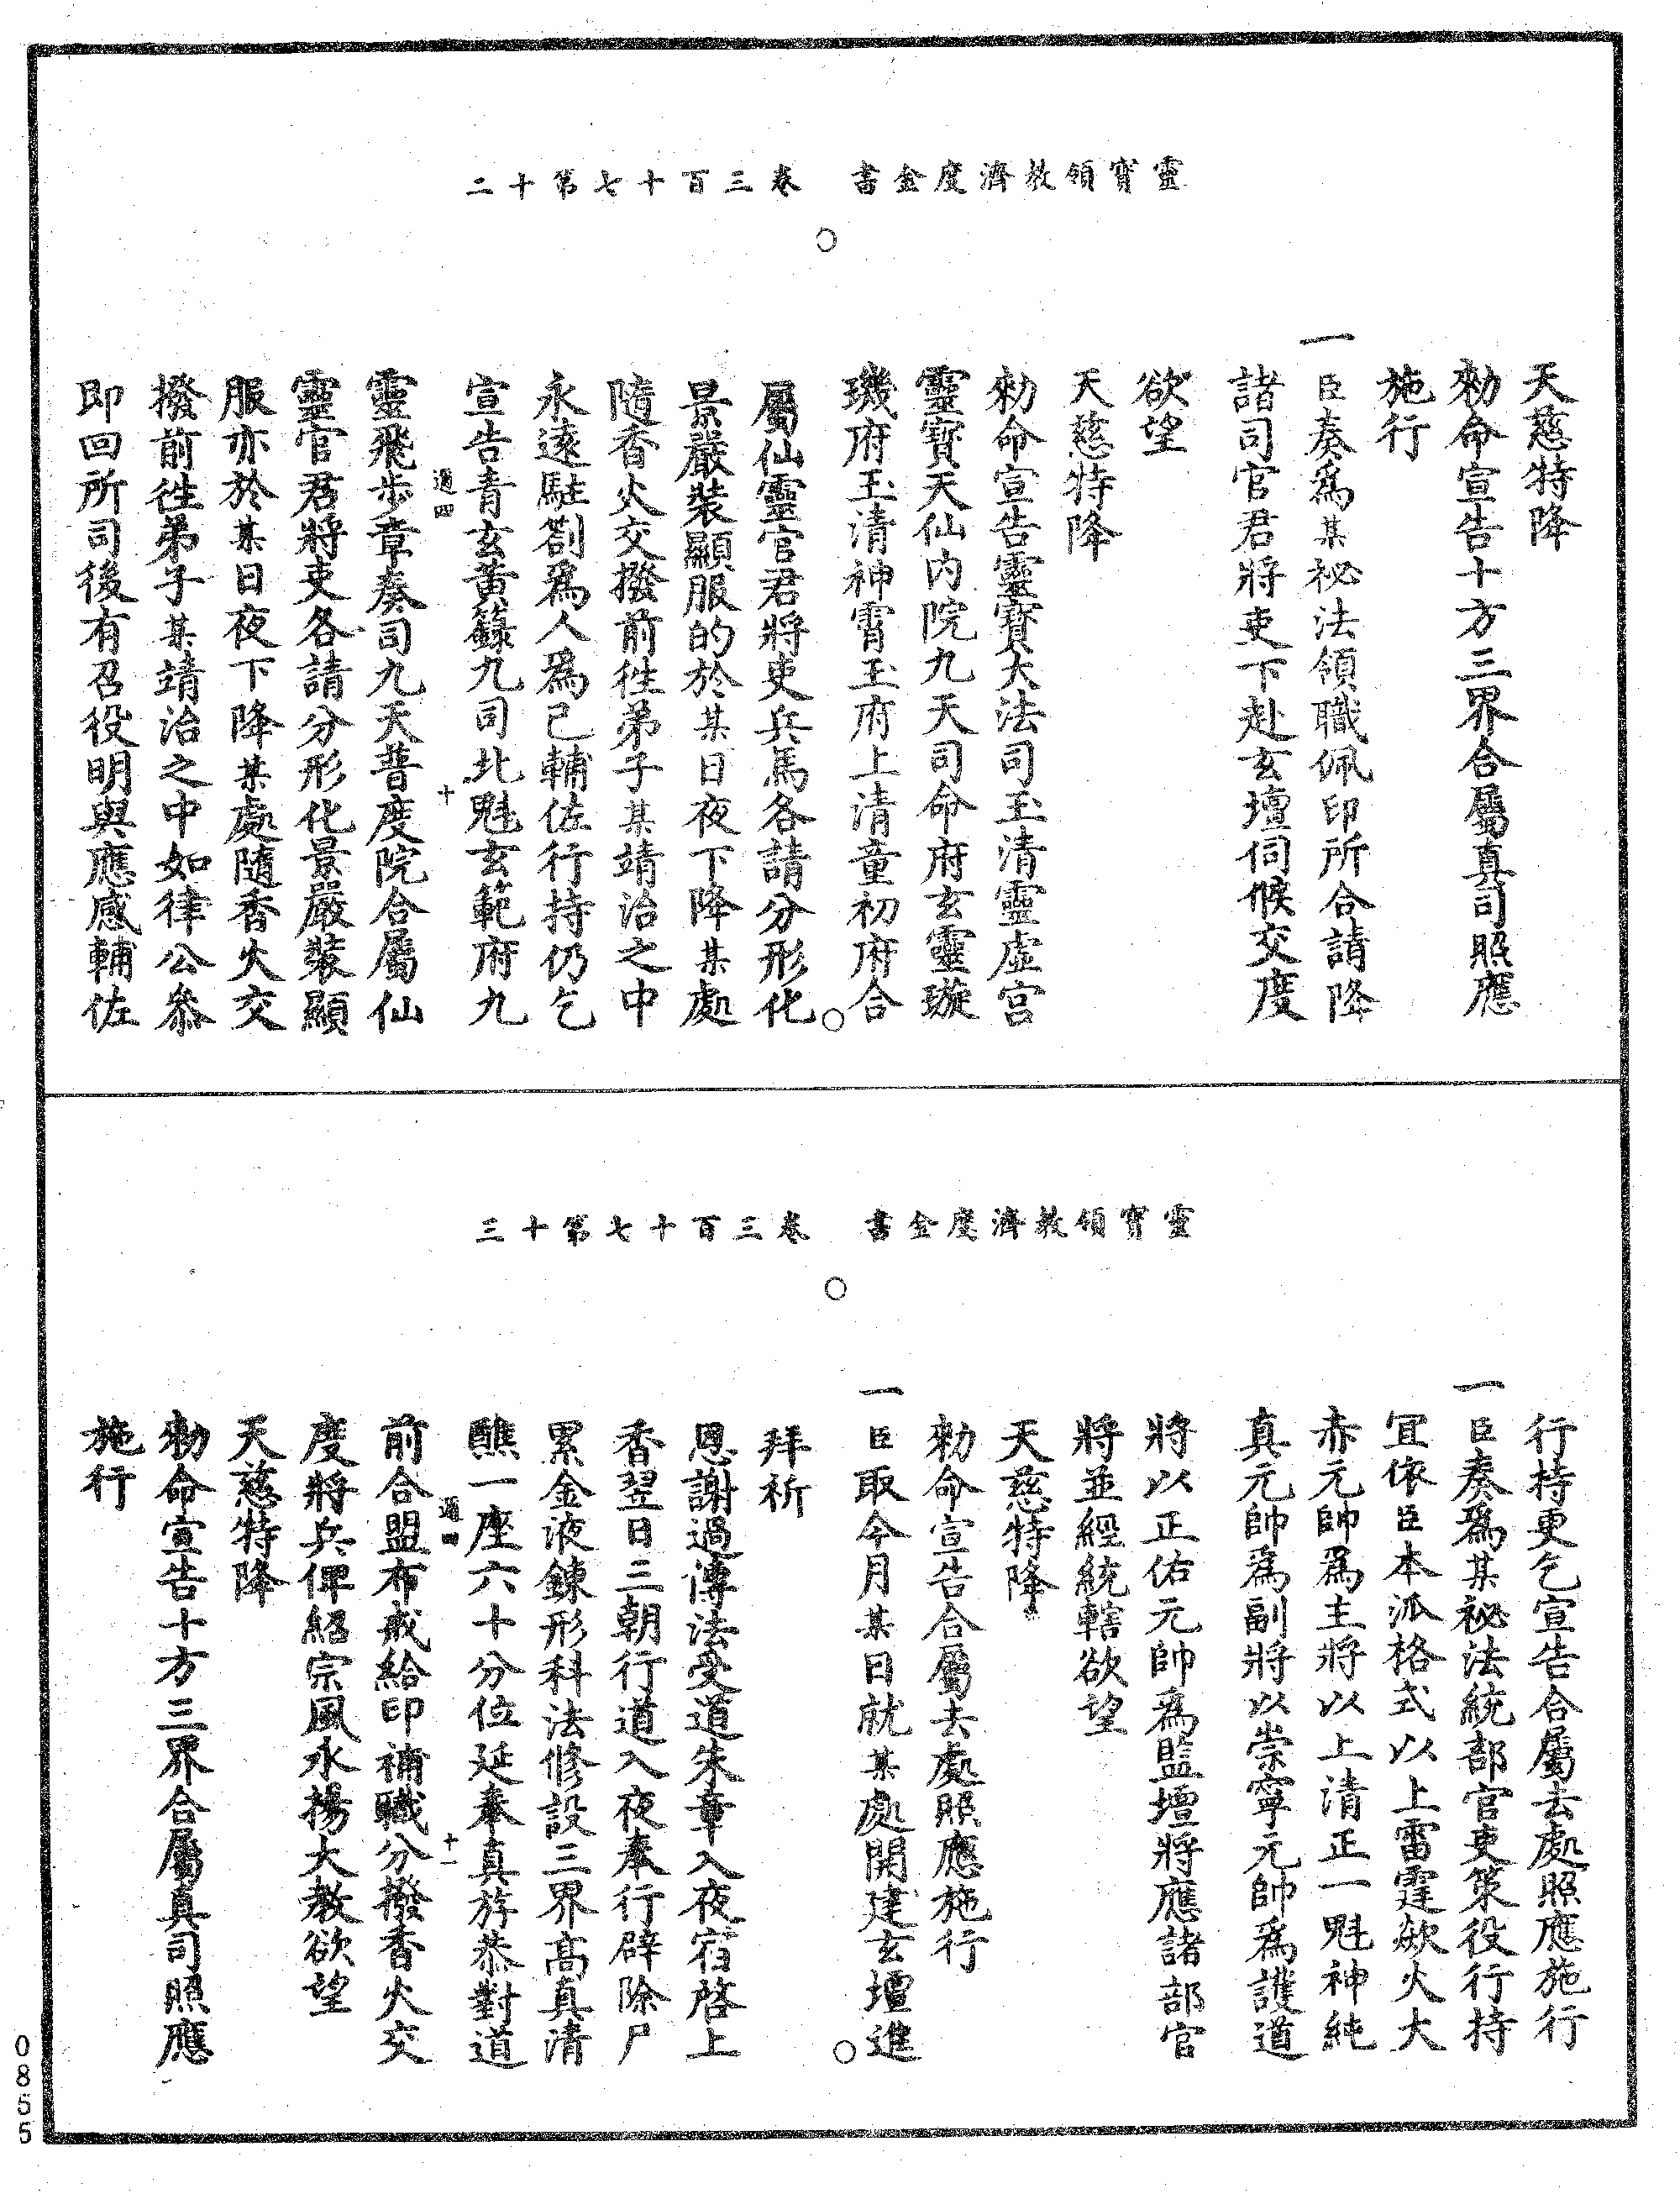 靈寶領教濟度金書　卷三百十七第十二
天慈特降
勑命宣告十方三界合屬真司照應
施行
一臣奏爲某祕法領職佩印所合請降
諸司官君將吏下赴玄壇伺候交度
欲望
天慈特降
勑命宣告靈寶大法司玉清靈虛宮
靈寶天仙内院九天司命府玄靈璇
璣府玉清神霄玉府上清童初府合
屬仙靈官君將吏兵馬各請分形化
景嚴裝顯服的於某日夜下降某處
隨香火交撥前徃弟子某靖治之中
永遠駐劄爲人爲己輔佐行持仍乞
宣告青玄黃籙九司北魁玄範府九
通四
十
靈飛步章奏司九天普度院合屬仙
靈官君將吏各請分形化景嚴裝顯
服亦於某日夜下降某處隨香火交
撥前徃弟子某靖治之中如律公參
即回所司後有召役明與應感輔佐
靈寶領教濟度金書　卷三百十七第十三
行持更乞宣告合屬去處照應施行
一臣奏爲某祕法統部官吏策役行持
宜依臣本派格式以上雷霆歘火大
赤元帥爲主將以上清正一魁神純
真元帥爲副將以崇寧元帥爲護道
將以正佑元帥爲監壇將應諸部官
將並經統轄欲望
天慈特降
勑命宣告合屬去處照應施行
一臣取今月某日就某處開建玄壇進
拜祈
恩謝過傳法受道朱章入夜宿啓上
香翌日三朝行道入夜奉行辟除尸
累金液錬形科法修設三界高真清
醮一座六十分位延奉真斿恭對道
通四
十一
前合盟布戒給印補職分撥香火交
度將兵俾紹宗風永揚大教欲望
天慈特降
勑命宣告十方三界合屬真司照應
施行
0855